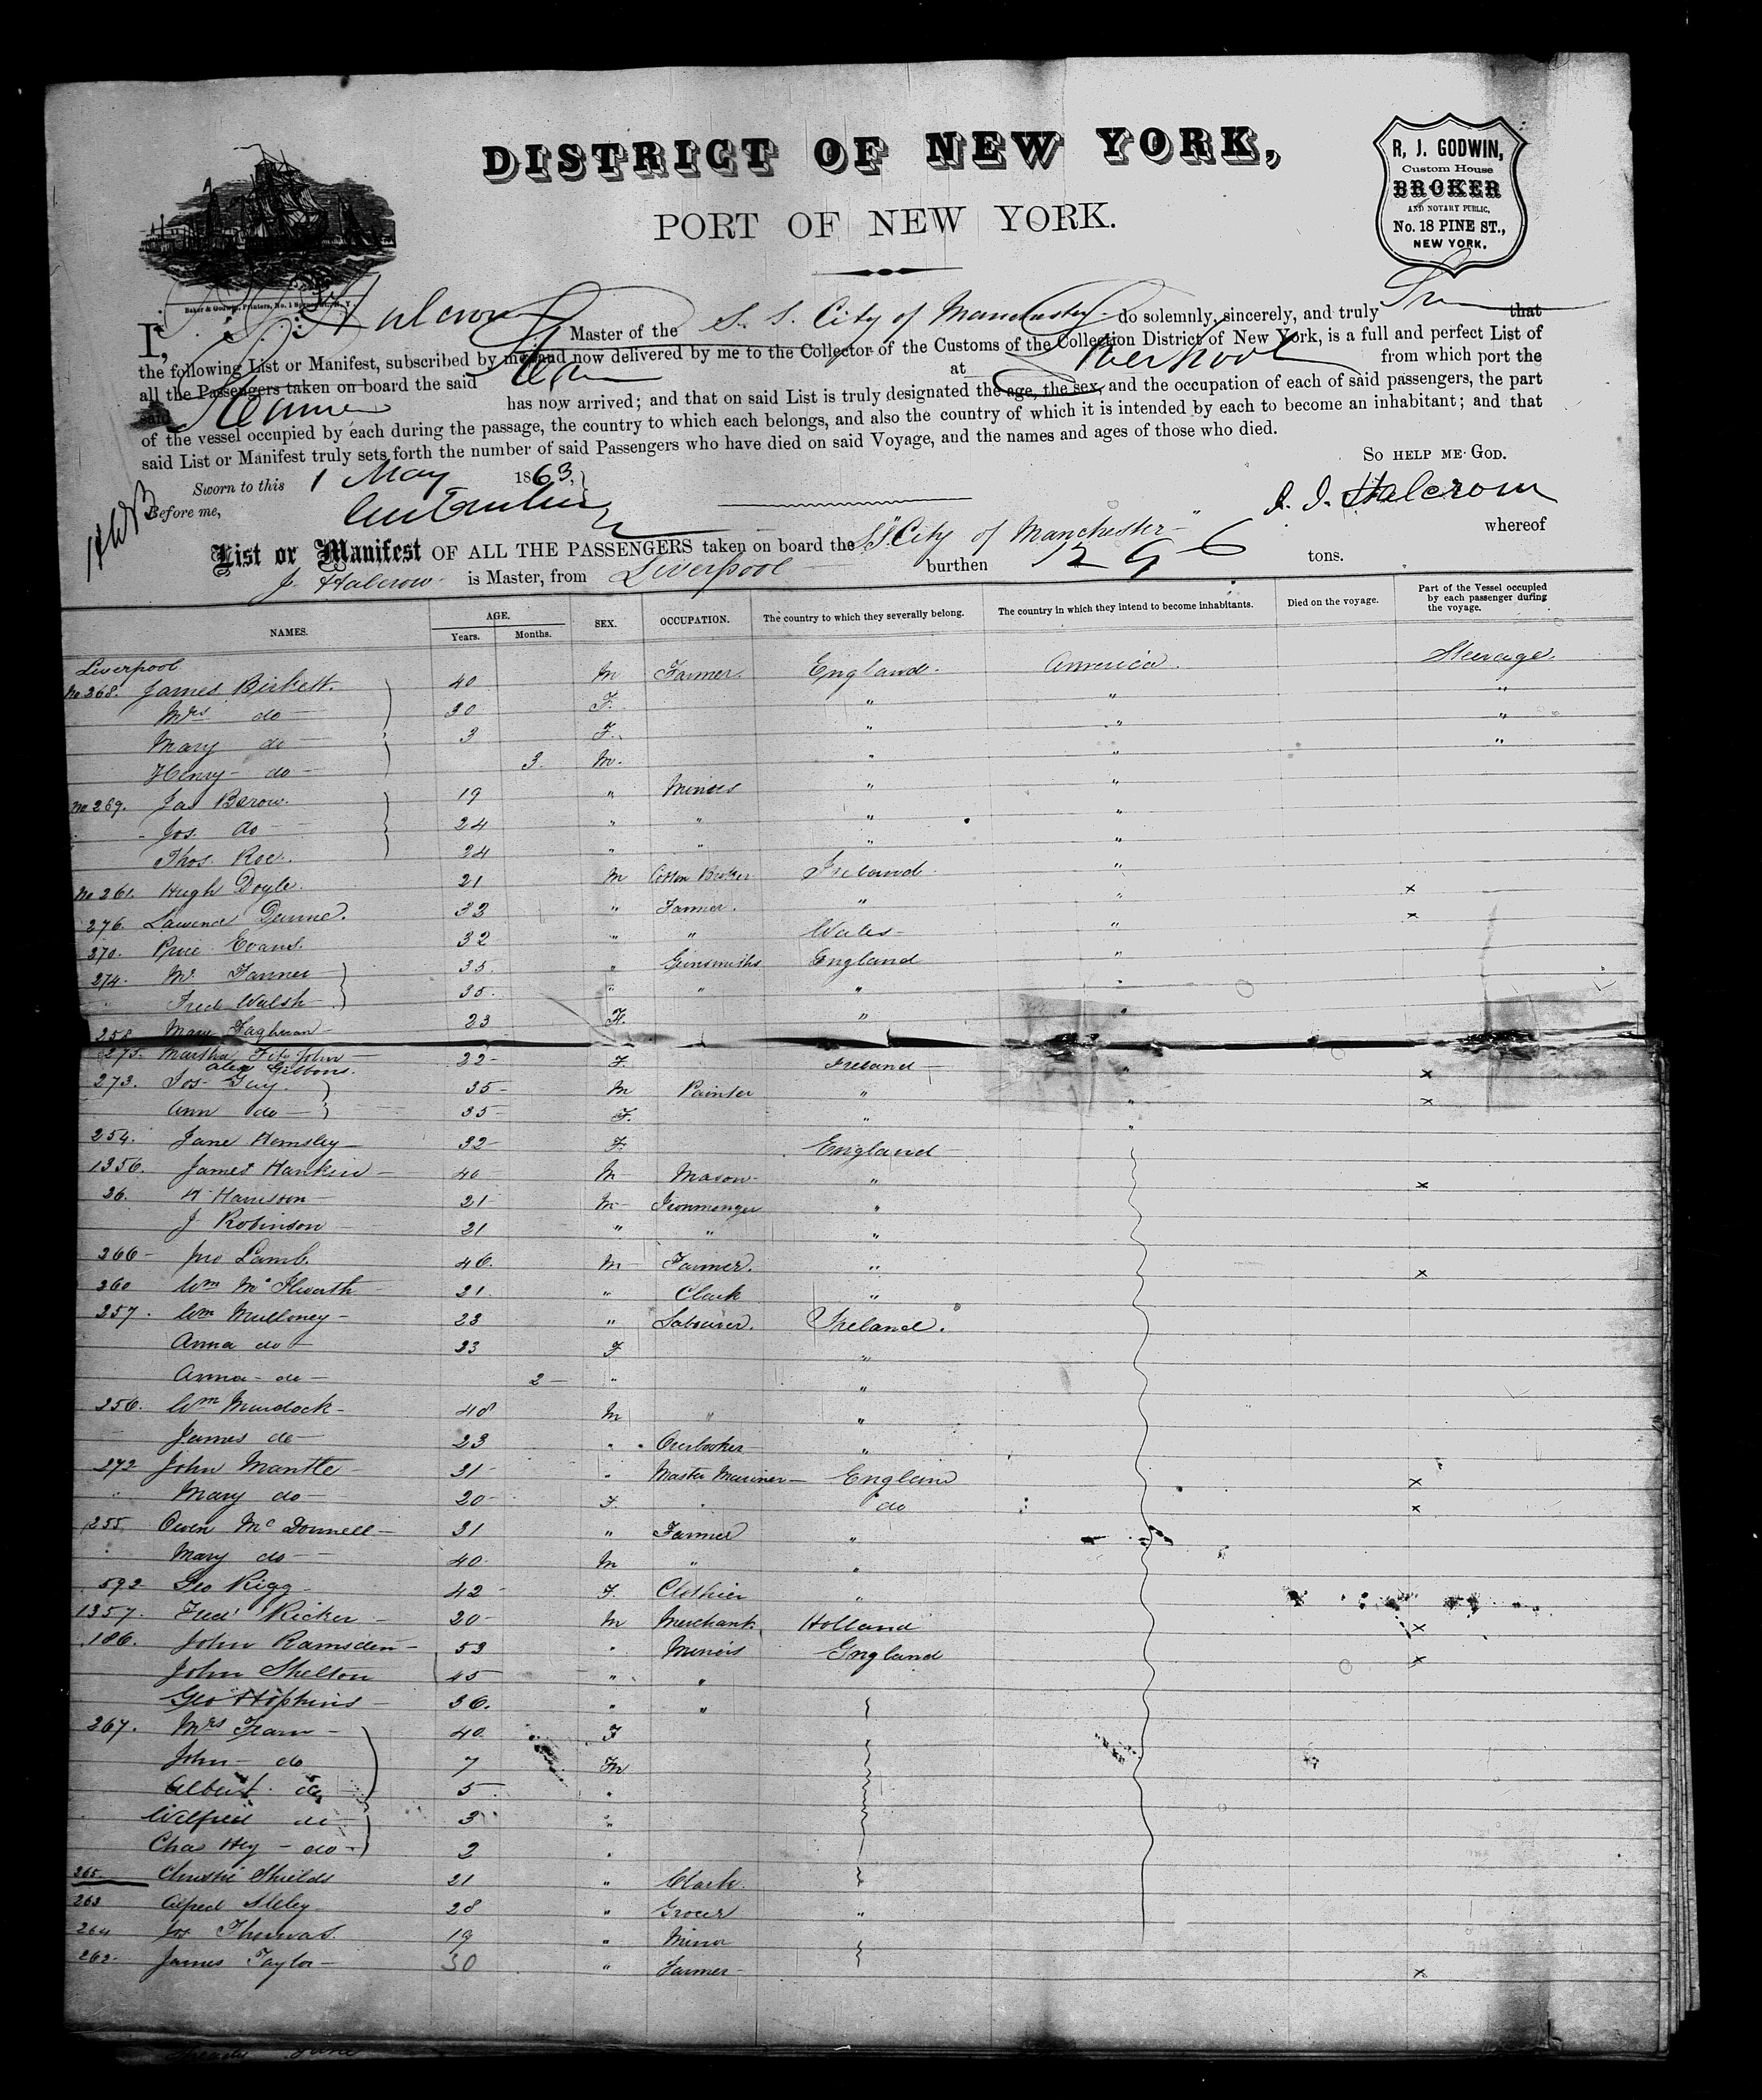 DISTRICT OF NEW YORK,
PORT OF NEW YORK.
R. J. GODWIN,
Custom House
BROKER
AND NOTARY PUBLIC,
No. 18 PINE ST.,
NEW YORK.
Baker & Godwin, Printers, No. 1 Spruce St., N. Y.
I, Halcrow Master of the S. S. City of Manchester do solemnly, sincerely, and truly that
the following List or Manifest, subscribed by me, and now delivered by me to the Collector of the Customs of the Collection District of New York, is a full and perfect List of
all the Passengers taken on board the said at Liverpool from which port the
said Steamer has now arrived; and that on said List is truly designated the age, the sex, and the occupation of each of said passengers, the part
of the vessel occupied by each during the passage, the country to which each belongs, and also the country of which it is intended by each to become an inhabitant; and that
said List or Manifest truly sets forth the number of said Passengers who have died on said Voyage, and the names and ages of those who died.
SO HELP ME GOD.
Sworn to this 1 May 1863,
Before me,
J. J. Halcrow
List or Manifest OF ALL THE PASSENGERS taken on board the S.S. "City of Manchester" whereof
J Halcrow is Master, from Liverpool burthen tons.
NAMES. AGE. Years. Months. SEX. OCCUPATION. The country to which they severally belong. The country in which they intend to become inhabitants. Died on the voyage. Part of the Vessel occupied by each passenger during the voyage.
Liverpool
No 268. James Birkett. 40 M Farmer. England. America. Steerage.
Mrs do 30 F. " " "
Mary do 3 F. " " "
Henry do 3. M. " " "
No 269. Jas Barow. 19 " Miners " "
Jos. do 24 " " " "
Thos. Roe. 24 " " " "
No 261. Hugh Doyle. 21 M Cotton Broker Ireland. " x
276. Lawence Dunne. 33 " Farmer. " " x
270. Price Evans. 32 " " Wales "
274. M. Farmer 35. " Gunsmiths England "
" Fred Walsh 35. " " " "
258 Mary 23 F. " "
275. Martha Fitz John 22 F. Ireland " x
Alex Gibbons.
273. Jos Guy. 35 M Painter " " x
Ann do 35 F. " "
254. Jane Hemsley 32 F. England
1356. James Hankin 40 M Mason " x
36. H Harrison 21 M Ironmonger "
J Robinson 21 " " "
266 Jno Lamb. 46. M Farmer. " x
260 Wm McIlwrath 21. " Clark "
257. Wm Mulloney 23 " Labourer. Ireland.
Anna do 23 F "
Anna do 2 " "
256. Wm Murdock 48 M " "
James do 23 " Overlooker "
272 John Mantle 31 " Master Mariner England x
" Mary do 20 F. " do x
255 Owen McDonnell 31 " Farmer "
Mary do 40. M " "
592 Geo Rigg 42 F. Clothier "
1357. Fred Ricker 20 M Merchant. Holland x
186. John Ramsden 53 " Miners England x
John Shelton 45 " "
Geo Hopkins 36. " "
267. Mrs 40. F
John do 7 M
Albert do 5 "
Wilfred do 3 "
Chas Hy do 2 "
265. Christie Shields 21 " Clark.
263 Alfred 28 " Grocer "
264 Jos Thomas. 19 " Minor
262. James Taylor 30 " Farmer x